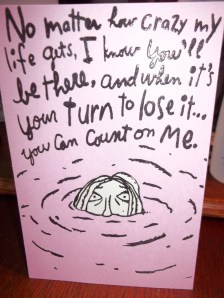 No matter how crazy my
life gets, I know you'll
be there, and when it's
your turn to lose it...
you can count on me.